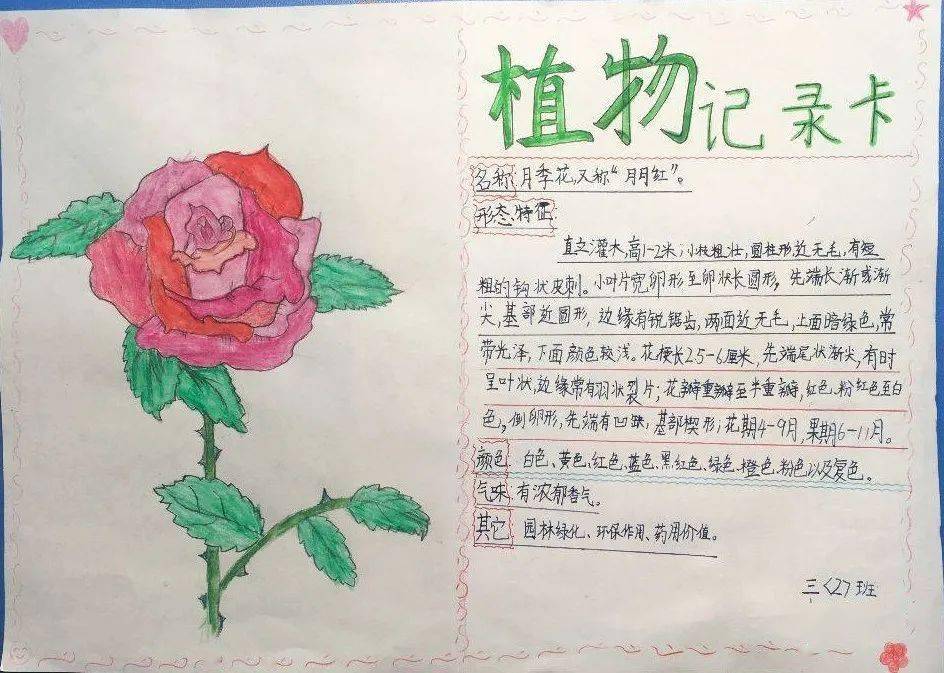 植物记录卡
名称 月季花,又称“月月红”。
形态、特征
直立灌木,高1-2米;小枝粗壮,圆柱形近无毛,有短
粗的钩状皮刺。小叶片宽卵形至卵状长圆形,先端长渐或渐
尖,基部近圆形,边缘有锐锯齿,两面近无毛,上面暗绿色,常
带光泽,下面颜色较浅。花梗长2.5-6厘米,先端尾状渐尖,有时
呈叶状,边缘常有羽状裂片;花瓣重瓣至半重瓣,红色、粉红色至白
色,倒卵形,先端有凹缺,基部楔形;花期4-9月,果期6-11月。
颜色 白色、黄色、红色、蓝色、黑红色、绿色、橙色、粉色以及复色。
气味 有浓郁香气。
其它 园林绿化、环保作用、药用价值。
三<2>班